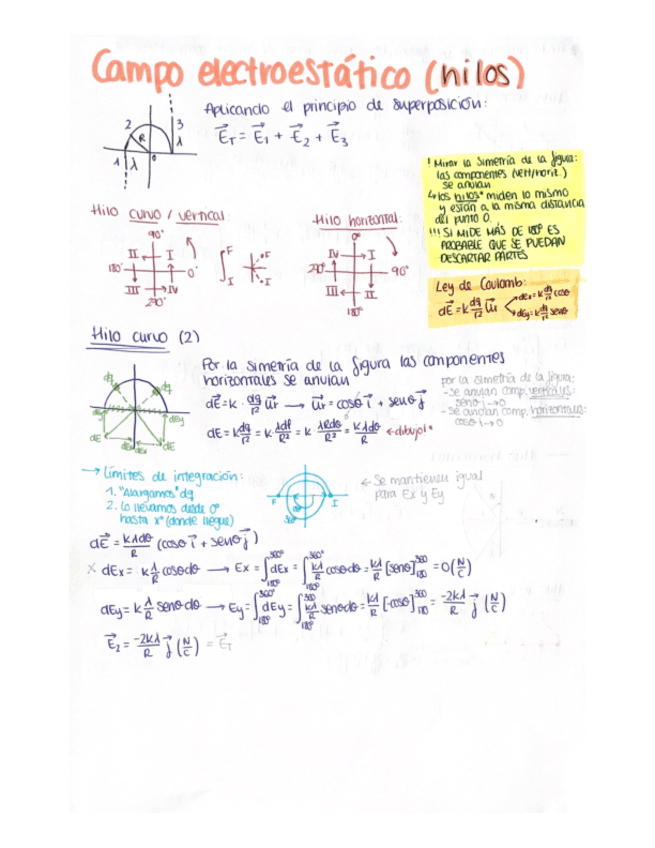 Campo electroestático (hilos)
Aplicando el principio de superposición:
E⃗T = E⃗1 + E⃗2 + E⃗3
2
3
R
λ
1
λ
0
! Mirar la simetría de la figura:
las componentes (vert/horiz.)
se anulan
↳ los hilos* miden lo mismo
y están a la misma distancia
del punto 0.
!!! SI MIDE MÁS DE 180° ES
PROBABLE QUE SE PUEDAN
DESCARTAR PARTES
Hilo curvo / vertical:
90°
II I
180° 0°
III IV
290°
∫ F I
F F
I I
Hilo horizontal:
0°
IV I
290° 90°
III II
180°
Ley de Coulomb:
dE⃗ = k dq/r² u⃗r
dEx = k dq/r² cosθ
dEy = k dq/r² senθ
Hilo curvo (2)
Por la simetría de la figura las componentes
horizontales se anulan
dE⃗ = k · dq/r² u⃗r → u⃗r = cosθ i⃗ + senθ j⃗
dE = k dq/r² = k · λdl/R² = k · λRdθ/R² = kλdθ/R ← dibujo!
por la simetría de la figura:
- se anulan comp. verticales:
senθ j → 0
- se anulan comp. horizontales:
cosθ i → 0
dq
dq
dEy
dE
dEx
dEx
dE
→ Límites de integración:
1. "Alargamos" dq
2. Lo llevamos desde 0°
hasta x° (donde llegue)
F
I
360°
← Se mantienen igual
para Ex y Ey
dE⃗ = kλdθ/R (cosθ i⃗ + senθ j⃗)
x dEx = kλ/R cosθdθ → Ex = ∫180°^360° dEx = ∫180°^360° kλ/R cosθdθ = kλ/R [senθ]180^360 = 0 (N/C)
dEy = kλ/R senθdθ → Ey = ∫180°^360° dEy = ∫180°^360 kλ/R senθdθ = kλ/R [-cosθ]180^360 = -2kλ/R j⃗ (N/C)
E⃗2 = -2kλ/R j⃗ (N/C) = E⃗T